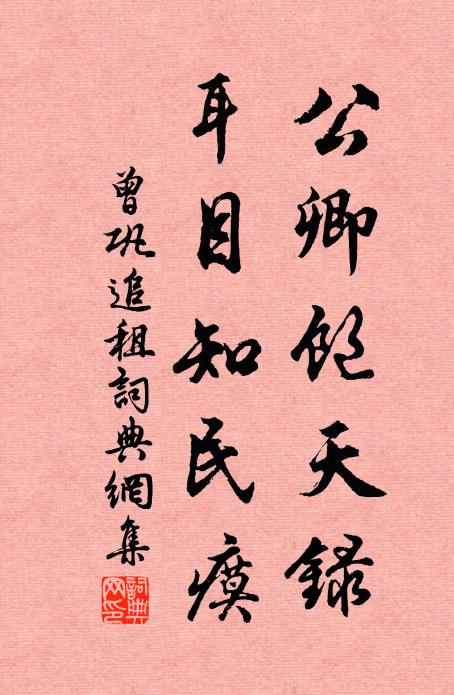 公卿飽天錄
耳目知民瘼
曾巩追租詞典網集
詞典網印